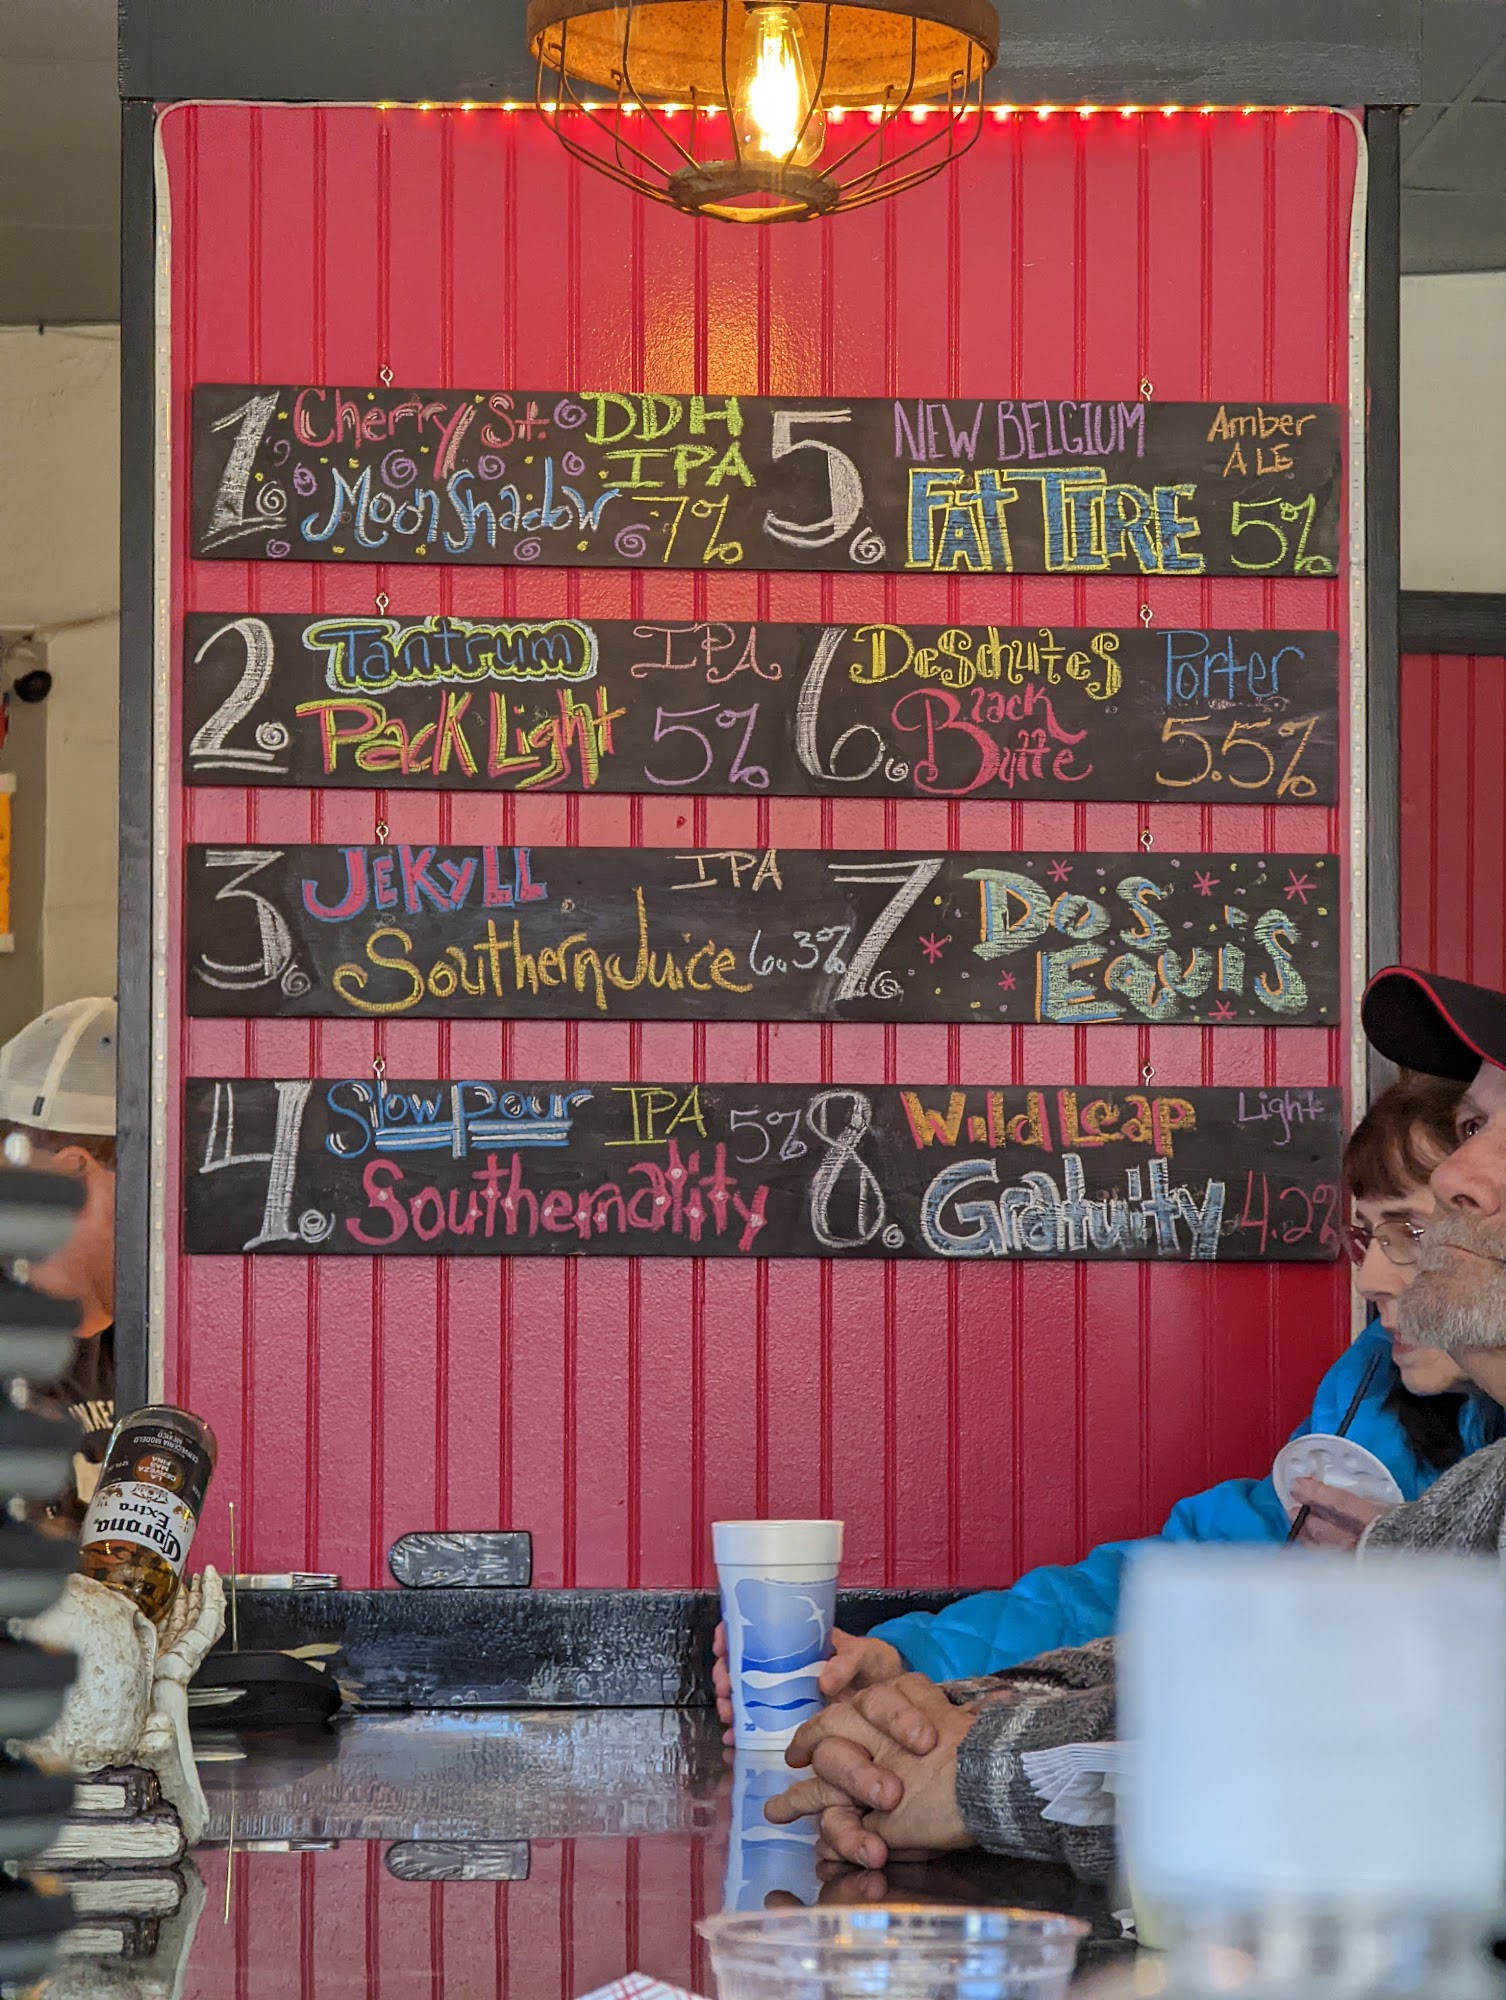 1. Cherry St. DDH
IPA
Moon Shadow 7%
2. Tantrum IPA
Pack Light 5%
3. JEKYLL IPA
Southern Juice 6.3%
4. Slow Pour IPA 5%
Southernality
5. NEW BELGIUM Amber
ALE
FAT TIRE 5%
6. Deschutes Porter
Black
Butte 5.5%
7. Dos
Equis
8. Wild Leap Light
Gratuity 4.2%
Corona
Extra
LA
CERVEZA
MAS
FINA
CERVECERIA MODELO
MEXICO